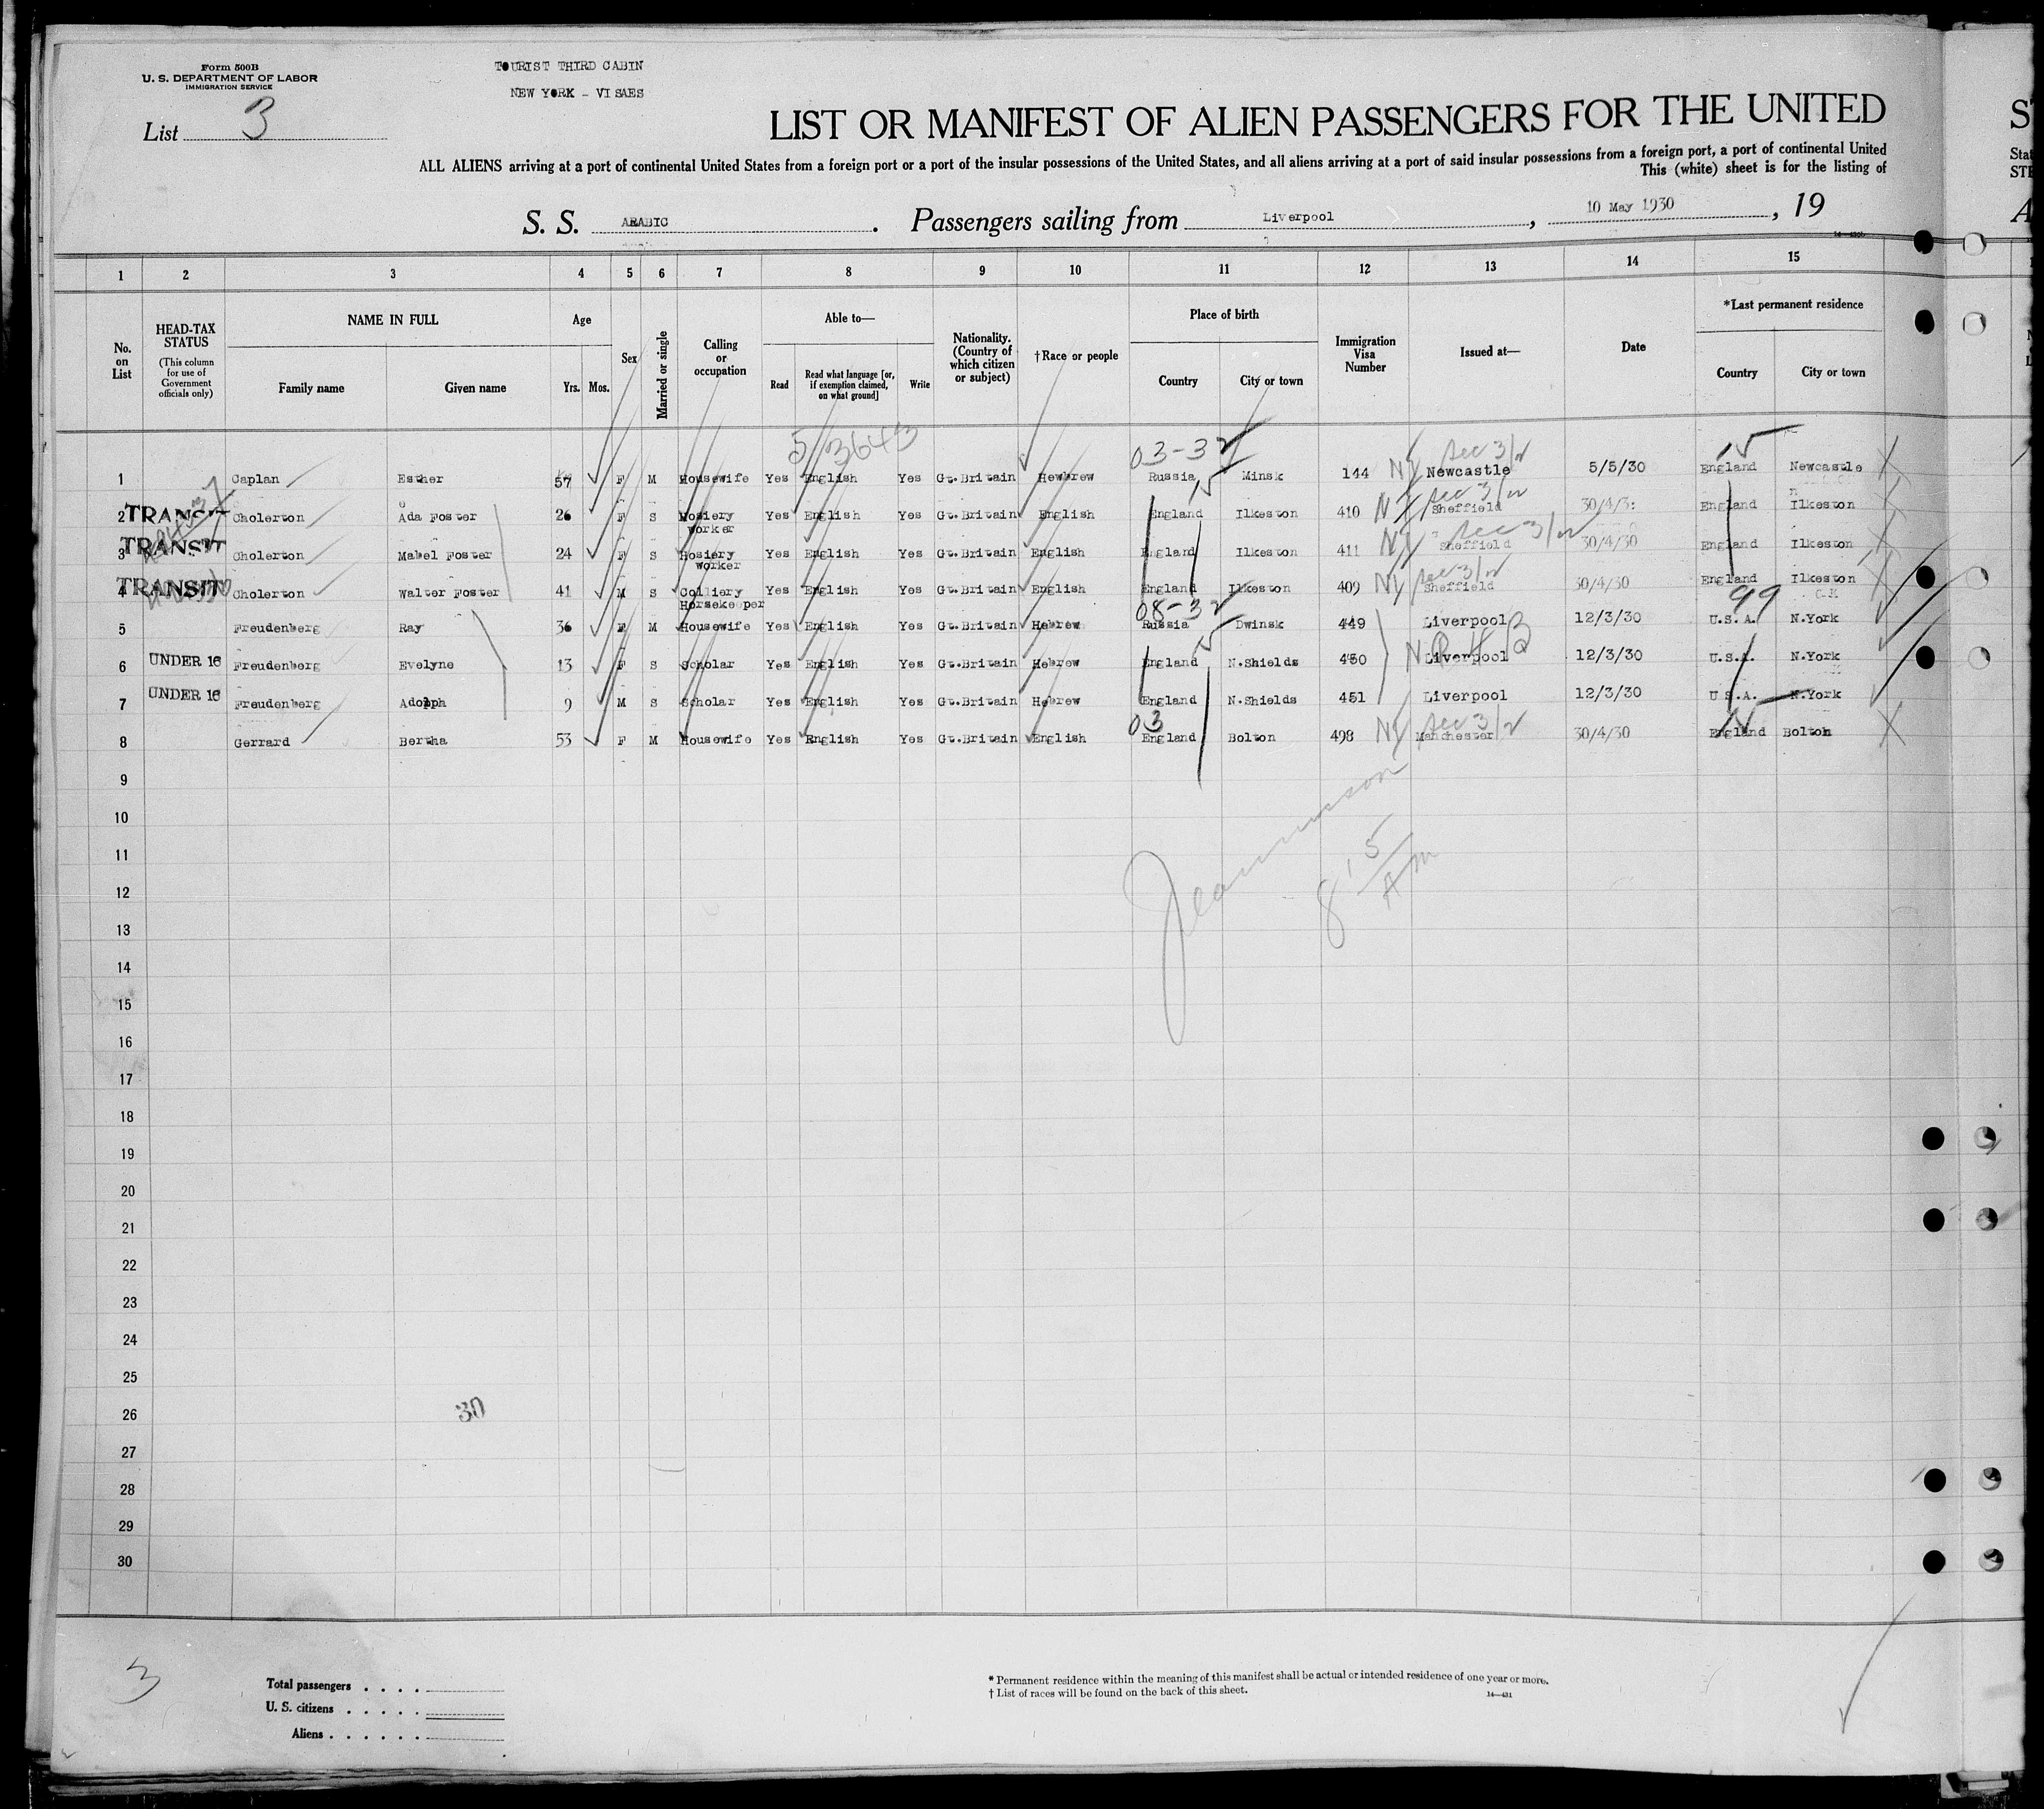 Form 500B
U. S. DEPARTMENT OF LABOR
IMMIGRATION SERVICE
TOURIST THIRD CABIN
NEW YORK - VISAES
List 3
LIST OR MANIFEST OF ALIEN PASSENGERS FOR THE UNITED
ALL ALIENS arriving at a port of continental United States from a foreign port or a port of the insular possessions of the United States, and all aliens arriving at a port of said insular possessions from a foreign port, a port of continental United
This (white) sheet is for the listing of
S. S. ARABIC. Passengers sailing from Liverpool, 10 May 1930, 19
1 2 3 4 5 6 7 8 9 10 11 12 13 14 15
No. on List
HEAD-TAX STATUS (This column for use of Government officials only)
NAME IN FULL
Family name Given name
Age
Yrs. Mos.
Sex
Married or single
Calling or occupation
Able to—
Read Read what language [or, if exemption claimed, on what ground] Write
Nationality. (Country of which citizen or subject)
†Race or people
Place of birth
Country City or town
Immigration Visa Number
Issued at—
Date
*Last permanent residence
Country City or town
5/3643 03-32 Sec 3/2 15
1 Caplan Esther 57 F M Housewife Yes English Yes Gt.Britain Hewbrew Russia Minsk 144 NY Newcastle 5/5/30 England Newcastle
2 TRANSIT Cholerton Ada Foster 26 F S Hosiery worker Yes English Yes Gt.Britain English England Ilkeston 410 NY Sec 3/2 Sheffield 30/4/3: England Ilkeston
3 TRANSIT Cholerton Mabel Foster 24 F S Hosiery worker Yes English Yes Gt.Britain English England Ilkeston 411 NY Sec 3/2 Sheffield 30/4/30 England Ilkeston
4 TRANSIT Cholerton Walter Foster 41 M S Colliery Horsekeeper Yes English Yes Gt.Britain English England Ilkeston 409 NY Sec 3/2 Sheffield 30/4/30 England Ilkeston
08-32 99
5 Freudenberg Ray 36 F M Housewife Yes English Yes Gt.Britain Hebrew Russia Dwinsk 449 Liverpool 12/3/30 U.S.A. N.York
6 UNDER 16 Freudenberg Evelyne 13 F S Scholar Yes English Yes Gt.Britain Hebrew England N.Shields 450 Liverpool 12/3/30 U.S.A. N.York
7 UNDER 16 Freudenberg Adolph 9 M S Scholar Yes English Yes Gt.Britain Hebrew England N.Shields 451 Liverpool 12/3/30 U.S.A. N.York
03
8 Gerrard Bertha 53 F M Housewife Yes English Yes Gt.Britain English England Bolton 498 NY Sec 3/2 Manchester 30/4/30 England Bolton
9
10
11
8 15 AM
12
13
14
15
16
17
18
19
20
21
22
23
24
25
26 30
27
28
29
30
3
Total passengers
U. S. citizens
Aliens
* Permanent residence within the meaning of this manifest shall be actual or intended residence of one year or more.
† List of races will be found on the back of this sheet.
14—431